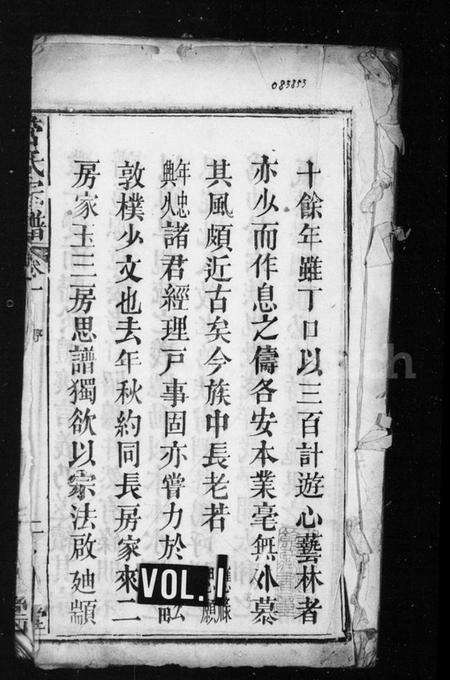 083853
十餘年雖丁口以三百計遊心藝林者
亦少而作息之儔各安本業毫無外慕
其風頗近古矣今族中長老若
年忠諸君經理戸事固亦嘗力於
敦樸少文也去年秋約同長房家來二
房家玉三房思譜獨欲以宗法啟廸顓
氏宗譜
卷一
序
VOL. 1